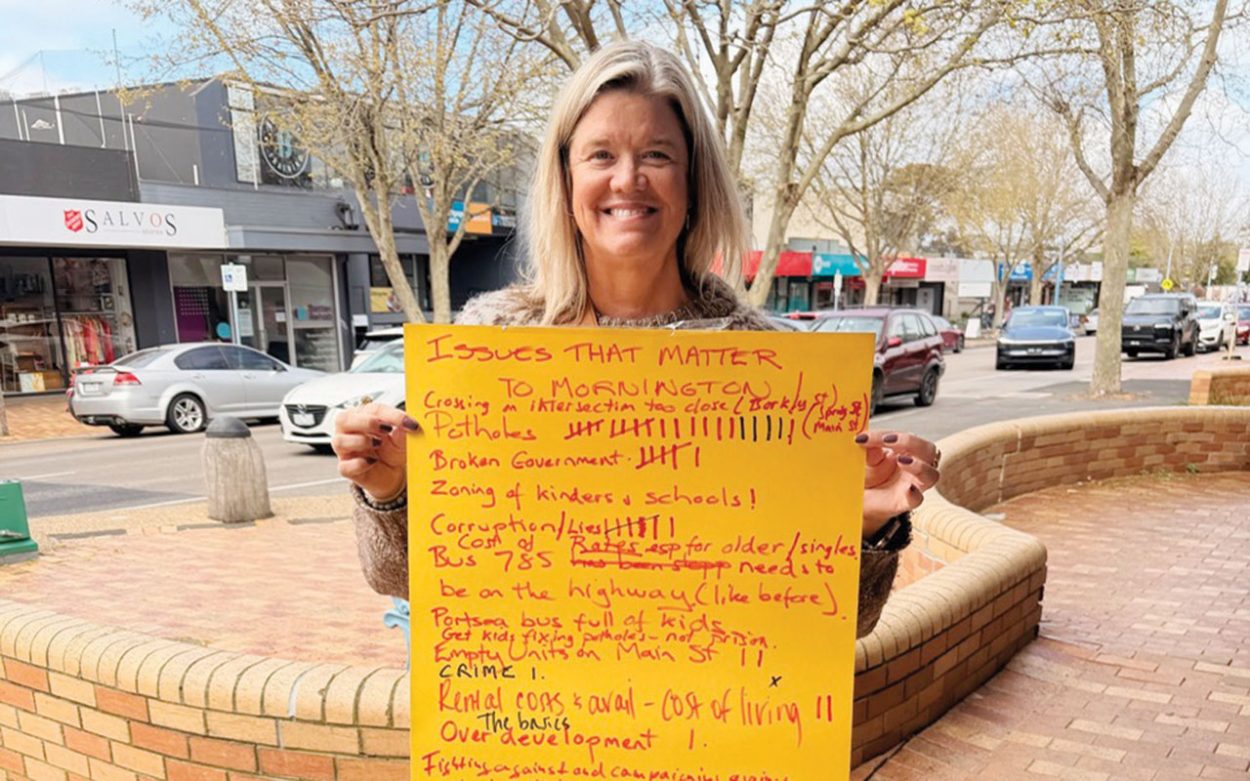 SALVOS
ISSUES THAT MATTER
TO MORNINGTON
Crossing on intersection too close (Barkly St)
Potholes (Main St)
Broken Government
Zoning of kinders & schools!
Corruption/Lies
Cost of Rates esp for older/singles
Bus 785 has been stopp needs to
be on the highway (like before).
Portsea bus full of kids
Get kids fixing potholes - not prison.
Empty Units on Main St
CRIME 1.
x
Rental costs & avail - cost of living
The basics
Over development 1.
Fighting against and campaigning